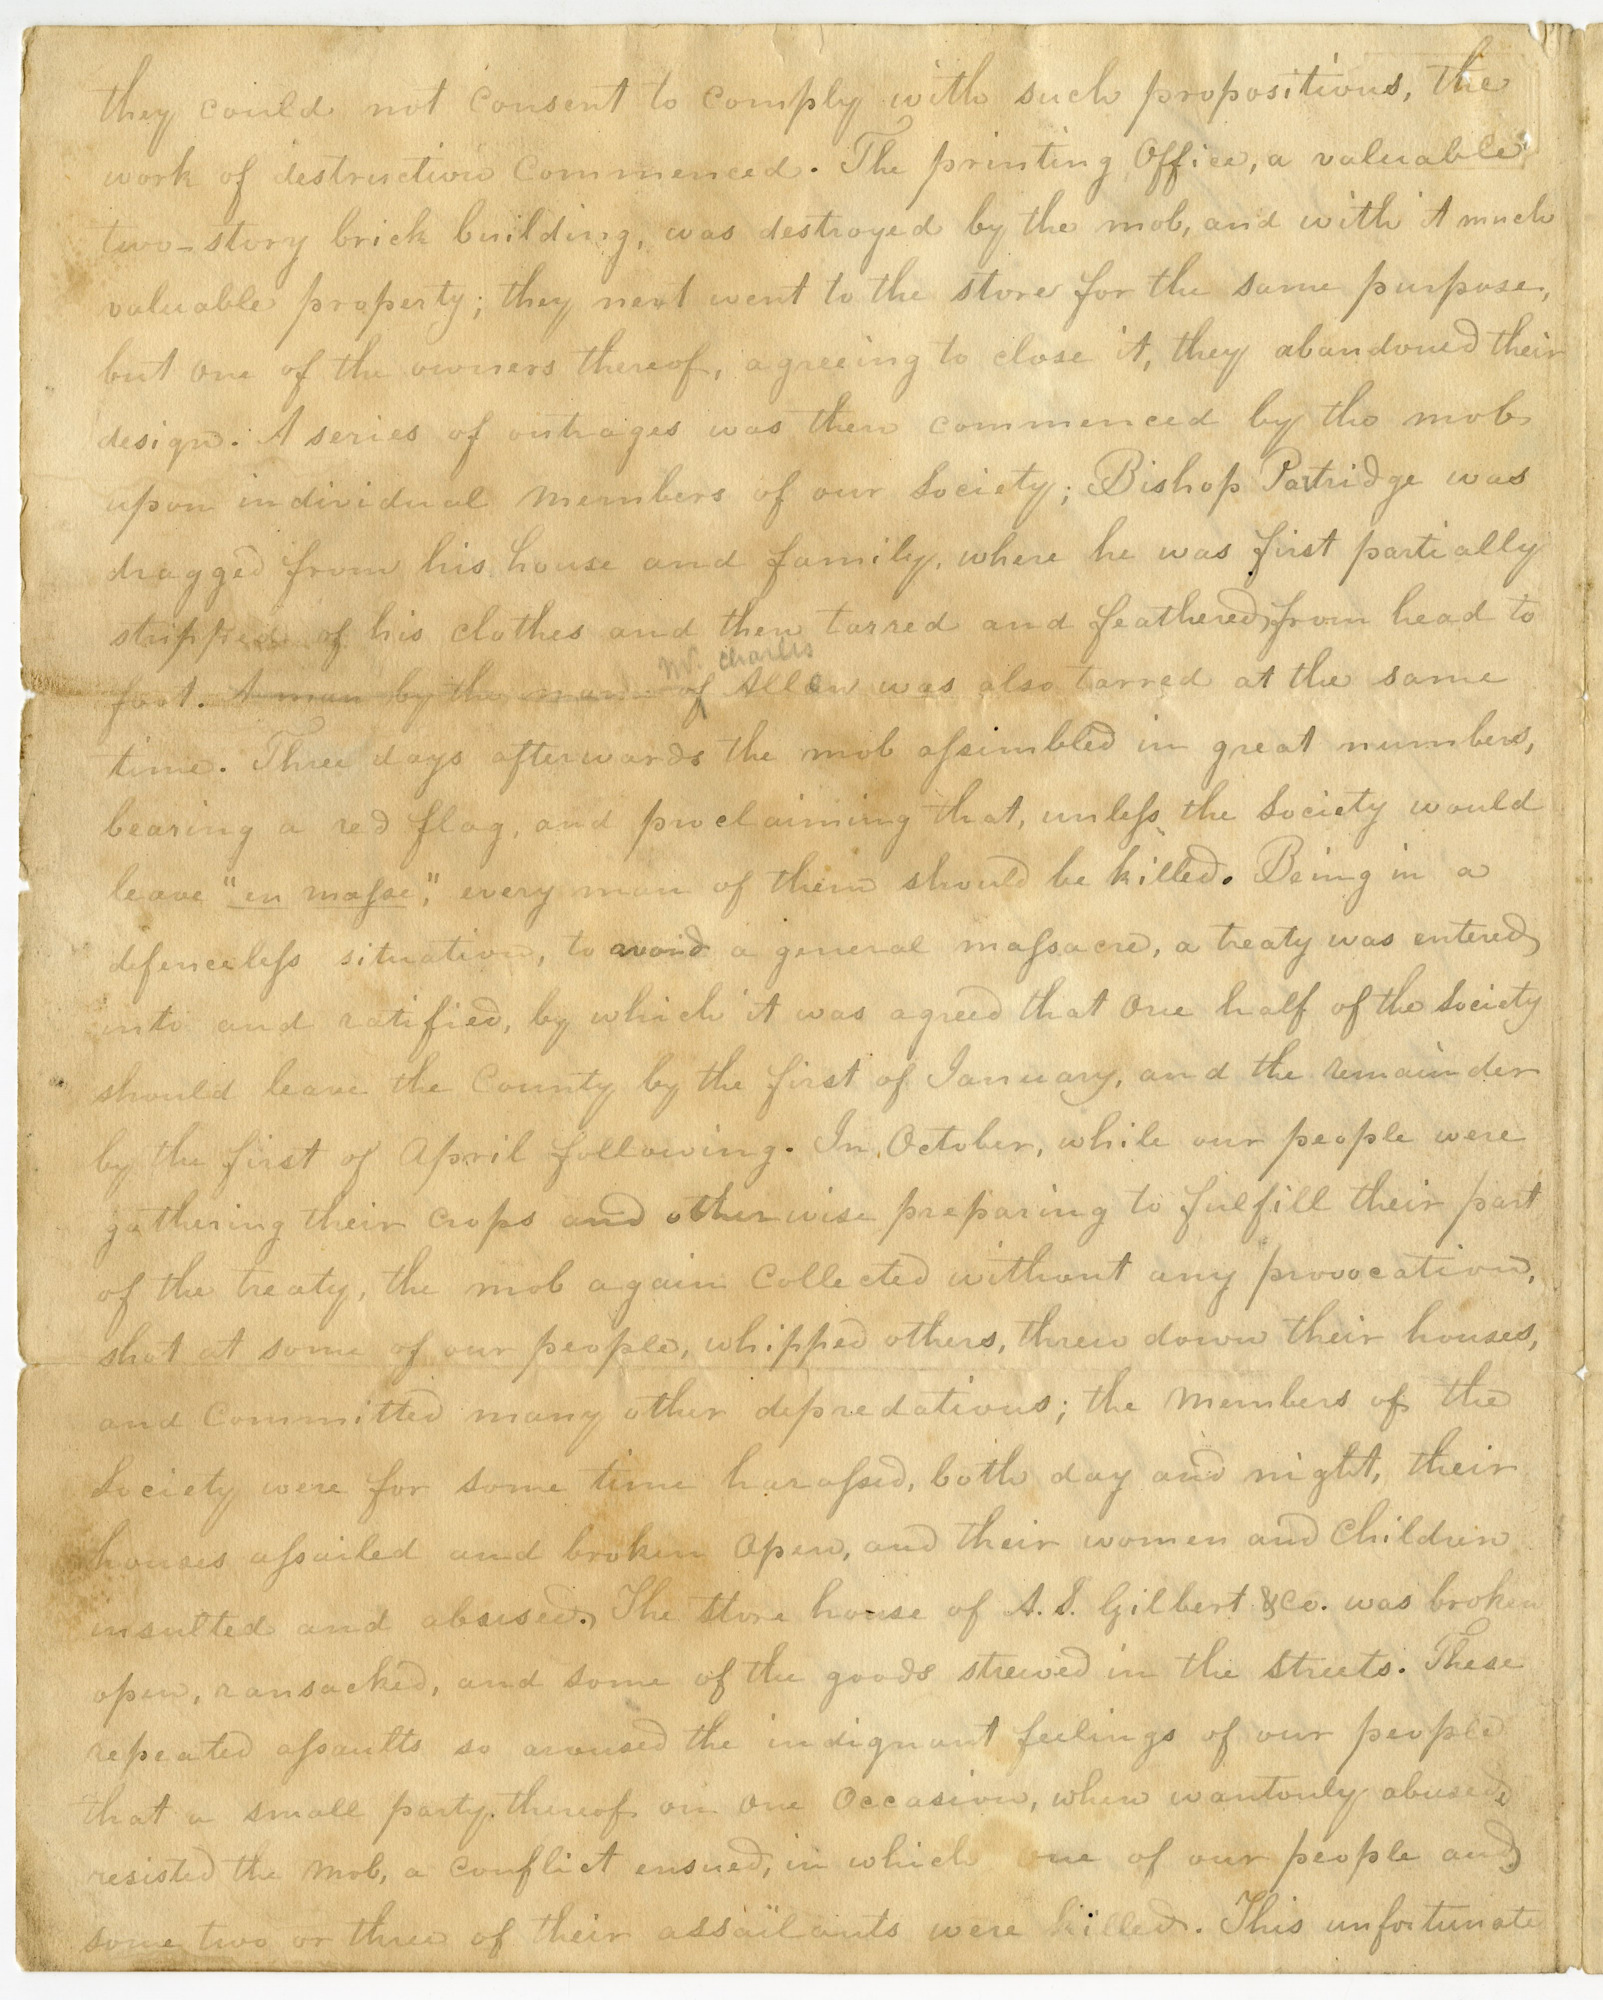 they could not consent to comply with such propositions, the
work of destruction Commenced. The printing Office, a valuable
two-story brick building, was destroyed by the mob, and with it much
valuable property; they next went to the store for the same purpose,
but one of the owners thereof, agreeing to close it, they abandoned their
design. A series of outrages was then commenced by the mob
upon individual members of our Society; Bishop Partridge was
dragged from his house and family, where he was first partially
stripped of his clothes and then tarred and feathered, from head to
Mr. Charles
foot. A man by the name of Allen was also tarred at the same
time. Three days afterwards the mob assimbled in great numbers,
bearing a red flag, and proclaiming that, unless the Society would
leave "en masse", every man of them should be killed. Being in a
defenceless situation, to avoid a general massacre, a treaty was entered
into and ratified, by which it was agreed that one half of the Society
should leave the County by the first of January, and the remainder
by the first of April following. In October, while our people were
gathering their crops and otherwise preparing to fulfill their part
of the treaty, the mob again Collected without any provocation,
shot at some of our people, whipped others, threw down their houses,
and Committed many other depredations; the members of the
Society were for some time harassed, both day and night, their
houses assailed and broken open, and their women and children
insulted and abused. The store house of A. S. Gilbert &Co. was broken
open, ransacked, and some of the goods strewed in the streets. These
repeated assaults so aroused the indignant feelings of our people
that a small party thereof on one Occasion, when wantonly abused,
resisted the mob, a conflict ensued, in which one of our people and
some two or three of their assailants were killed. This unfortunate